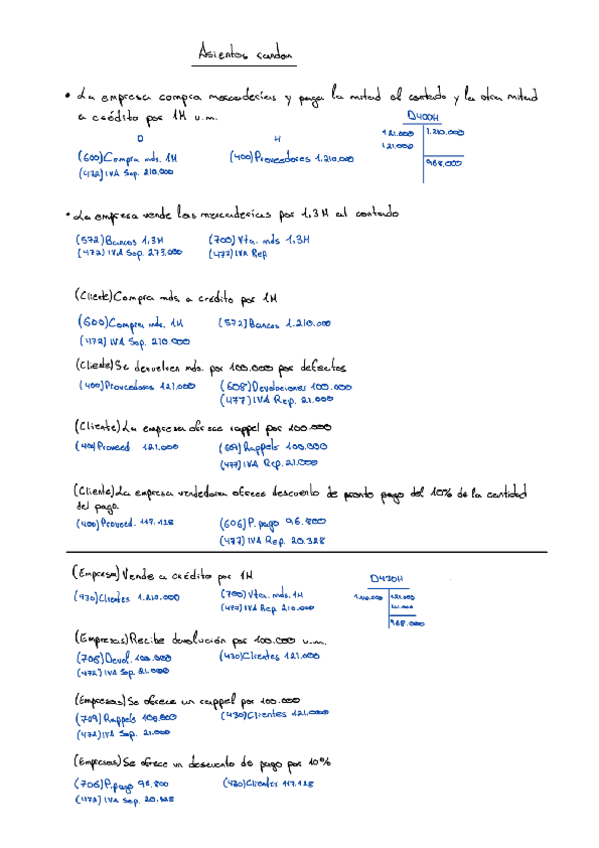 Asientos random
• La empresa compra mercaderías y paga la mitad al contado y la otra mitad
a crédito por 1M u.m.
D400H
D H
121.000 1.210.000
121.000
(600)Compra mds. 1M (400)Proveedores 1.210.000
968.000
(472)IVA Sop. 210.000
• La empresa vende las mercaderías por 1,3M al contado
(572)Bancos 1,3M (700)Vta. mds 1,3M
(472)IVA Sop. 273.000 (477)IVA Rep
(Cliente)Compra mds. a crédito por 1M
(600)Compra mds. 1M (572)Bancos 1.210.000
(472) IVA Sop. 210.000
(Cliente)Se devuelven mds. por 100.000 por defectos
(400)Proveedores 121.000 (608)Devoluciones 100.000
(477)IVA Rep. 21.000
(Cliente)La empresa ofrece rappel por 100.000
(400)Proveed. 121.000 (609)Rappels 100.000
(477)IVA Rep. 21.000
(Cliente)La empresa vendedora ofrece descuento de pronto pago del 10% de la cantidad
del pago.
(400)Proveed. 117.128 (606)P. pago 96.800
(477)IVA Rep. 20.328
(Empresa)Vende a crédito por 1M
D430H
(430)Clientes 1.210.000 (700)Vta. mds. 1M
1.210.000 121.000
(477)IVA Rep. 210.000
121.000
968.000
(Empresas)Recibe devolución por 100.000 u.m.
(708)Devol. 100.000 (430)Clientes 121.000
(472)IVA Sop. 21.000
(Empresas)Se ofrece un rappel por 100.000
(709)Rappels 100.000 (430)Clientes 121.000
(472)IVA Sop. 21.000
(Empresas)Se ofrece un descuento de pago por 10%
(706)P.pago 96.800 (430)Clientes 117.128
(472) IVA Sop. 20.328